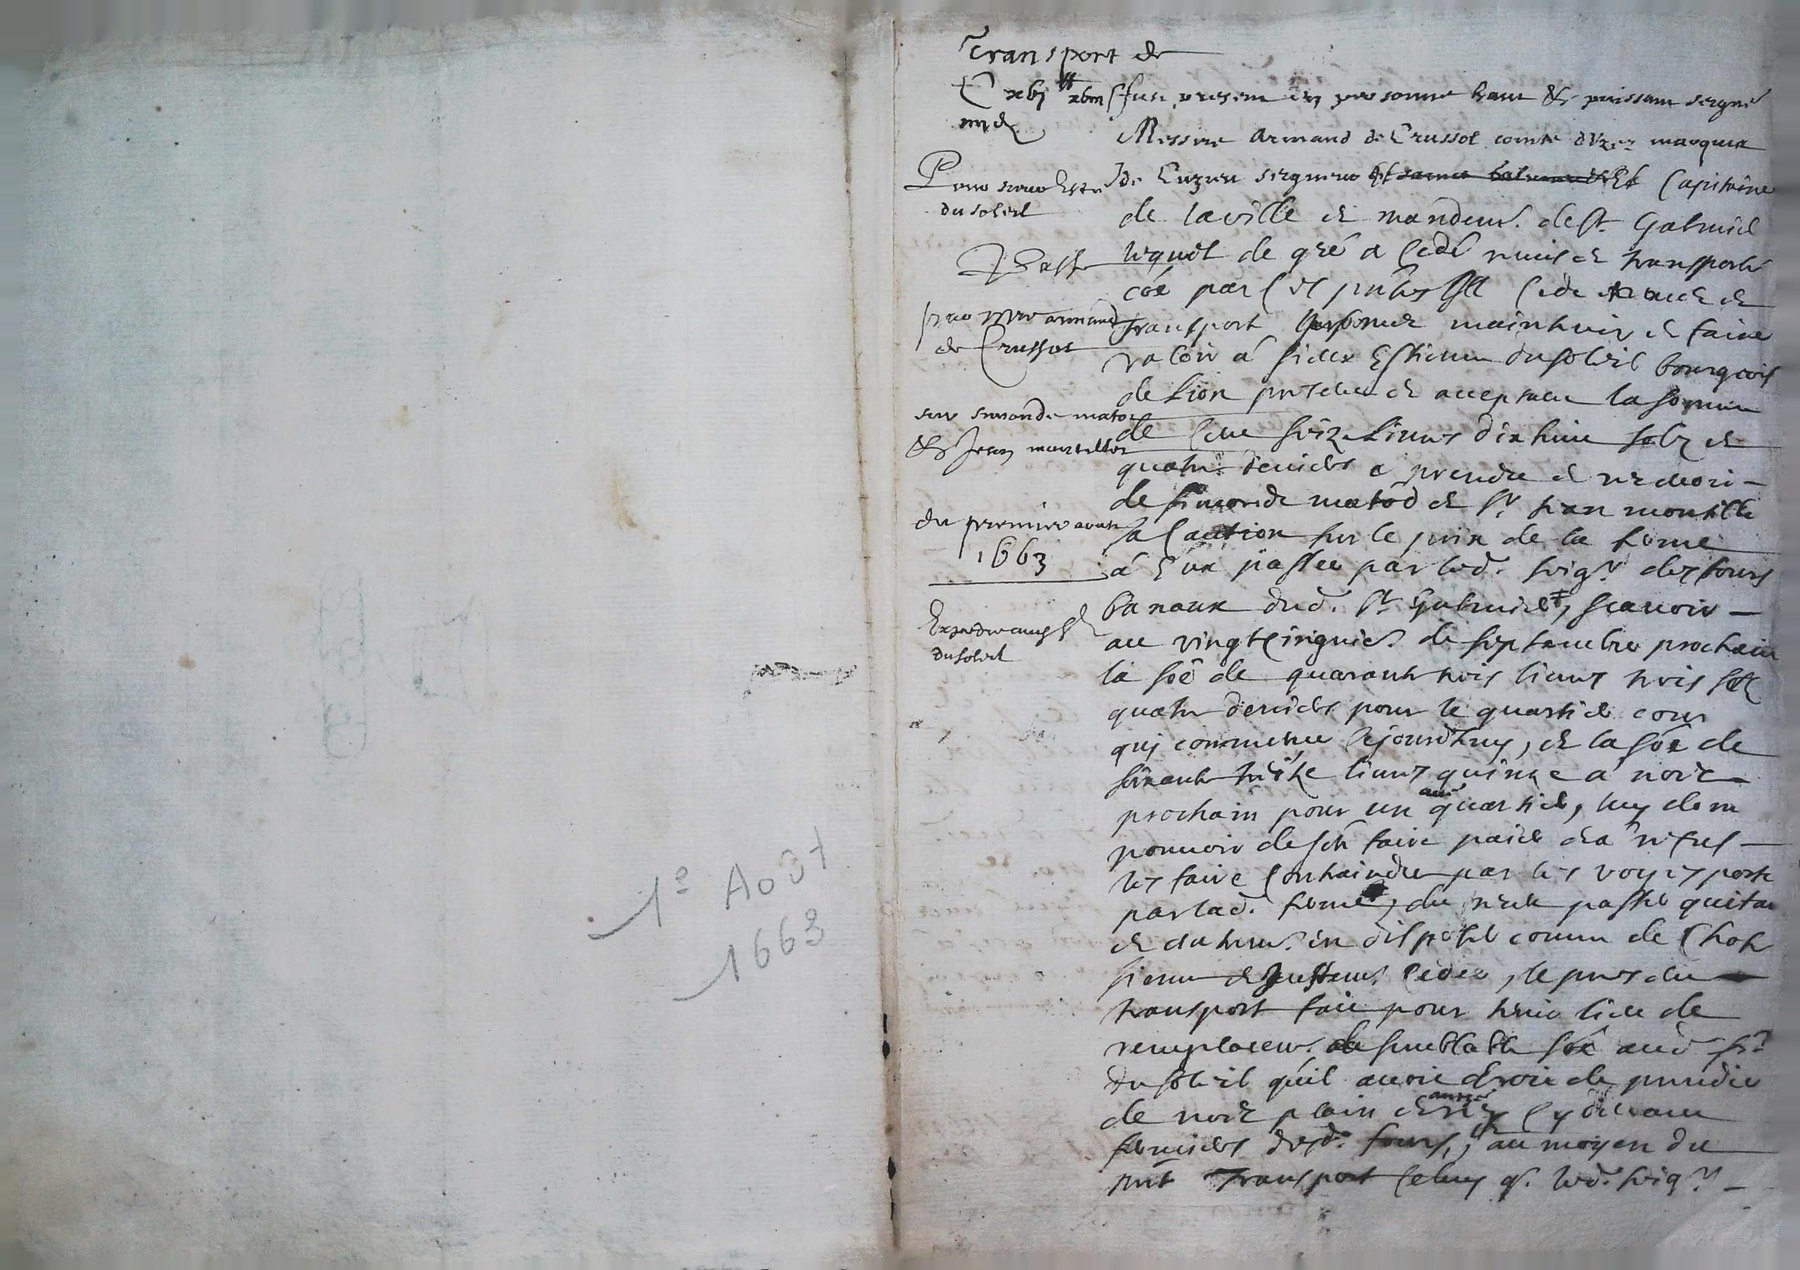 1e Août
1663
Transport de
C xbj ll xbiii s
iiii d
Pour sieur Este
du soleil
Passé
par mre armand
de Crussol
sur simonde matod
& Jean monteillet
du premier aoust
1663
Expedié aud sr
du soleil
fust present en personne haut & puissant seignr
Messire Armand de Crussol comte duzez marquis
de Cuzieu seigneur Et Capitaine
de la ville et mandemt. de st. Galmied
lequel de gré a cedé remis et transporté
coe par ces pntes Il cede remet et
transport promet maintenir et faire
valoir á sieur Estienne du soleil bourgeois
de Lion present et acceptant la somme
de cent seize livres dix huit solz et
quatre deniers a prendre et recevoir
de simonde matod et sr. Jean monteille
sa caution sur le prix de la ferme
á eux passee par led. seigr. des fours
banaux dud. st. Galmied, scavoir
au vingt cinquie. de septembre prochain
la soe de quarante trois livres trois solz
quatre deniers pour le quartier cour
qui commence cejourdhuy, et la soe de
soixante treize livres quinze a noel
prochain pour un au quartier,
pouvoir de sen faire paier et a refus
les faire contraindre par les voyes porte
par lad. ferme, du receu passer quitan
et autremt. en disposer comme de chose
sienne led. seigr. cedee, le present
transport fait pour tenir lieu de
remplacemt. de semblable soe aud sr.
du soleil quil avoit droit de prendre
de noel plain cydevant
fermiers desd. fours, au moyen du
pnt Transport celuy q. led. seigr.